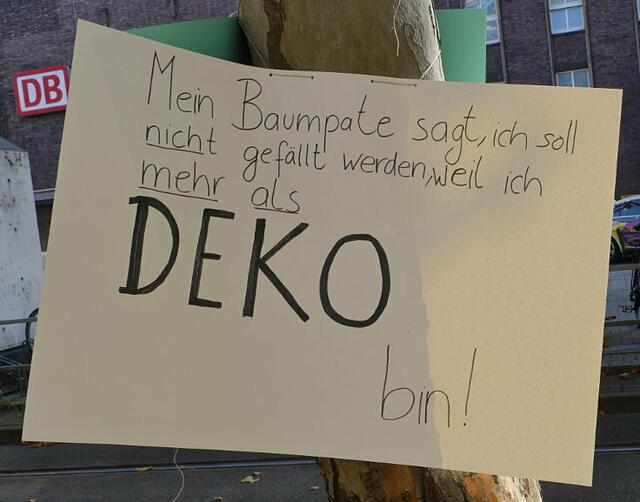 DB
Mein Baumpate sagt, ich soll
nicht gefällt werden, weil ich
mehr als
DEKO
bin!